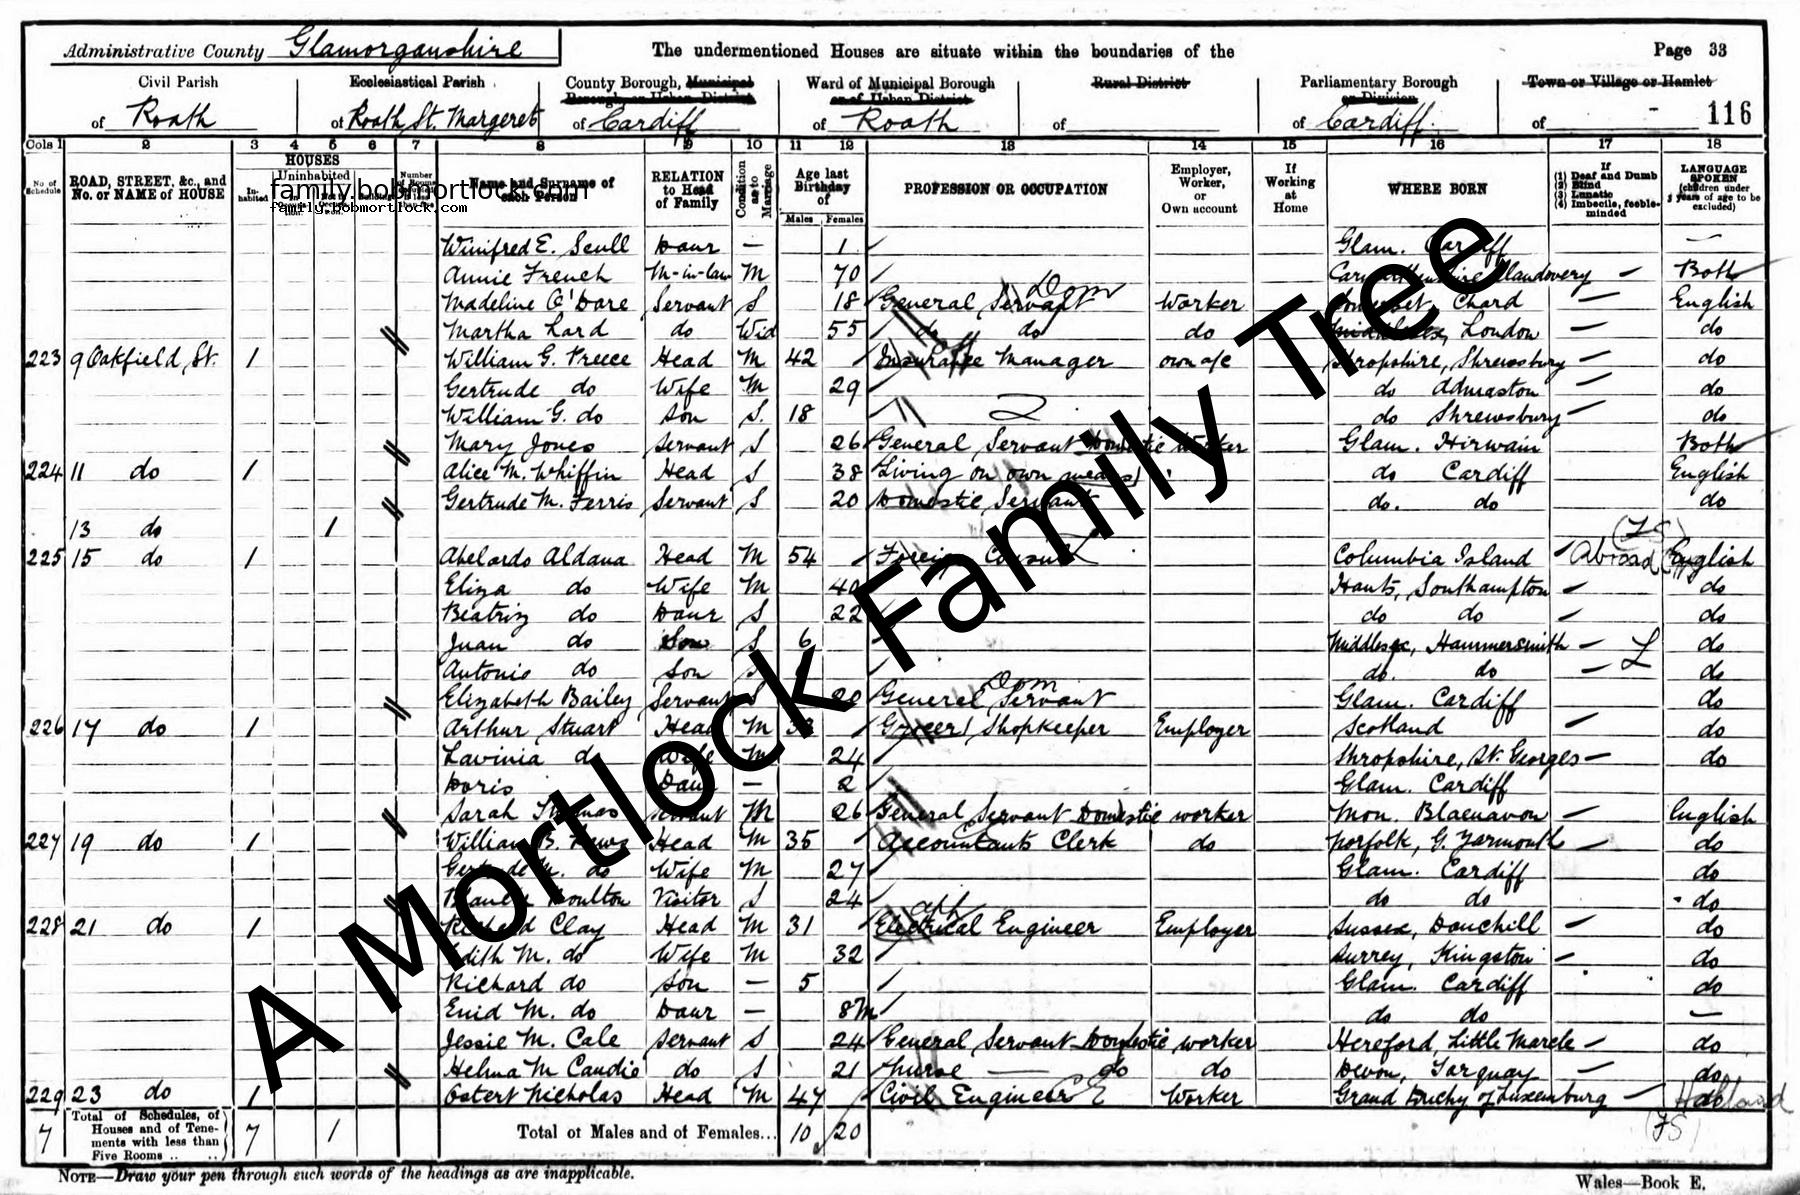 Administrative County Glamorganshire The undermentioned Houses are situate within the boundaries of the Page 33
Civil Parish Ecclesiastical Parish County Borough, Municipal Borough or Urban District Ward of Municipal Borough or of Urban District Rural District Parliamentary Borough or Division Town or Village or Hamlet
of Roath of Roath St. Margeret of Cardiff of Roath of of Cardiff. of - 116
Cols 1 2 3 4 5 6 7 8 9 10 11 12 13 14 15 16 17 18
No of Schedule ROAD, STREET, &c., and No. or NAME of HOUSE HOUSES Inhabited Uninhabited Name and Surname of each Person RELATION to Head of Family Condition as to Marriage Age last Birthday of Males Females PROFESSION OR OCCUPATION Employer, Worker, or Own account If Working at Home WHERE BORN If (1) Deaf and Dumb (2) Blind (3) Lunatic (4) Imbecile, feeble-minded LANGUAGE SPOKEN (children under 3 years of age to be excluded)
family.bobmortlock.com
family.bobmortlock.com
Winifred E. Scull Daur — 1 Glam. Cardiff —
Annie French M-in-law M 70 Carmarthenshire Llandovery — Both
Madeline O'Dare Servant S 18 General Servant Dom Worker Somerset, Chard — English
Martha Lard do Wid 55 do do do Middlesex, London — do
223 9 Oakfield St. 1 William G. Preece Head M 42 Insurance Manager own a/c Shropshire, Shrewsbury — do
Gertrude do Wife M 29 do Admaston — do
William G. do Son S. 18 do Shrewsbury — do
Mary Jones Servant S 26 General Servant Domestic Worker Glam. Hirwain Both
224 11 do 1 Alice M. Whiffin Head S 38 Living on own means do Cardiff English
Gertrude M. Ferris Servant S 20 Domestic Servant do. do do
13 do 1 (FS)
225 15 do 1 Abelardo Aldana Head M 54 Foreign Consul Columbia Island Abroad English
Eliza do Wife M 40 Hants, Southampton — do
Beatriz do Daur S 22 do do do
Juan do Son S 6 Middlesex, Hammersmith — do
Antonio do Son S do. do — do
Elizabeth Bailey Servant S 20 General Servant Dom Glam. Cardiff do
226 17 do 1 Arthur Stuart Head M 33 Grocer Shopkeeper Employer Scotland — do
Lavinia do Wife M 24 Shropshire, St. Georges — do
Doris Daur — 2 Glam. Cardiff
Sarah Thomas Servant M 26 General Servant Domestic worker Mon. Blaenavon — English
227 19 do 1 William B. Head M 35 Accountants Clerk do Norfolk, G. Yarmouth — do
Gertrude M. do Wife M 27 Glam. Cardiff do
Boulton Visitor S 24 do do do
228 21 do 1 Richard Clay Head M 31 Electrical Engineer Employer Sussex, — do
Edith M. do Wife M 32 Surrey, Kingston — do
Richard do Son — 5 Glam. Cardiff do
Enid M. do Daur — 8m do do —
Jessie M. Cale Servant S 24 General Servant Domestic worker Hereford, Little Marcle — do
Helma M Candie do S 21 Nurse — do do Devon, Torquay — do
229 23 do 1 Ostert Nicholas Head M 47 Civil Engineer CE Worker Grand Duchy of Luxemburg — do Holland
(FS)
7 Total of Schedules, of Houses and of Tenements with less than Five Rooms .. 7 1 Total of Males and of Females... 10 20
NOTE—Draw your pen through such words of the headings as are inapplicable. Wales—Book E.
A Mortlock Family Tree